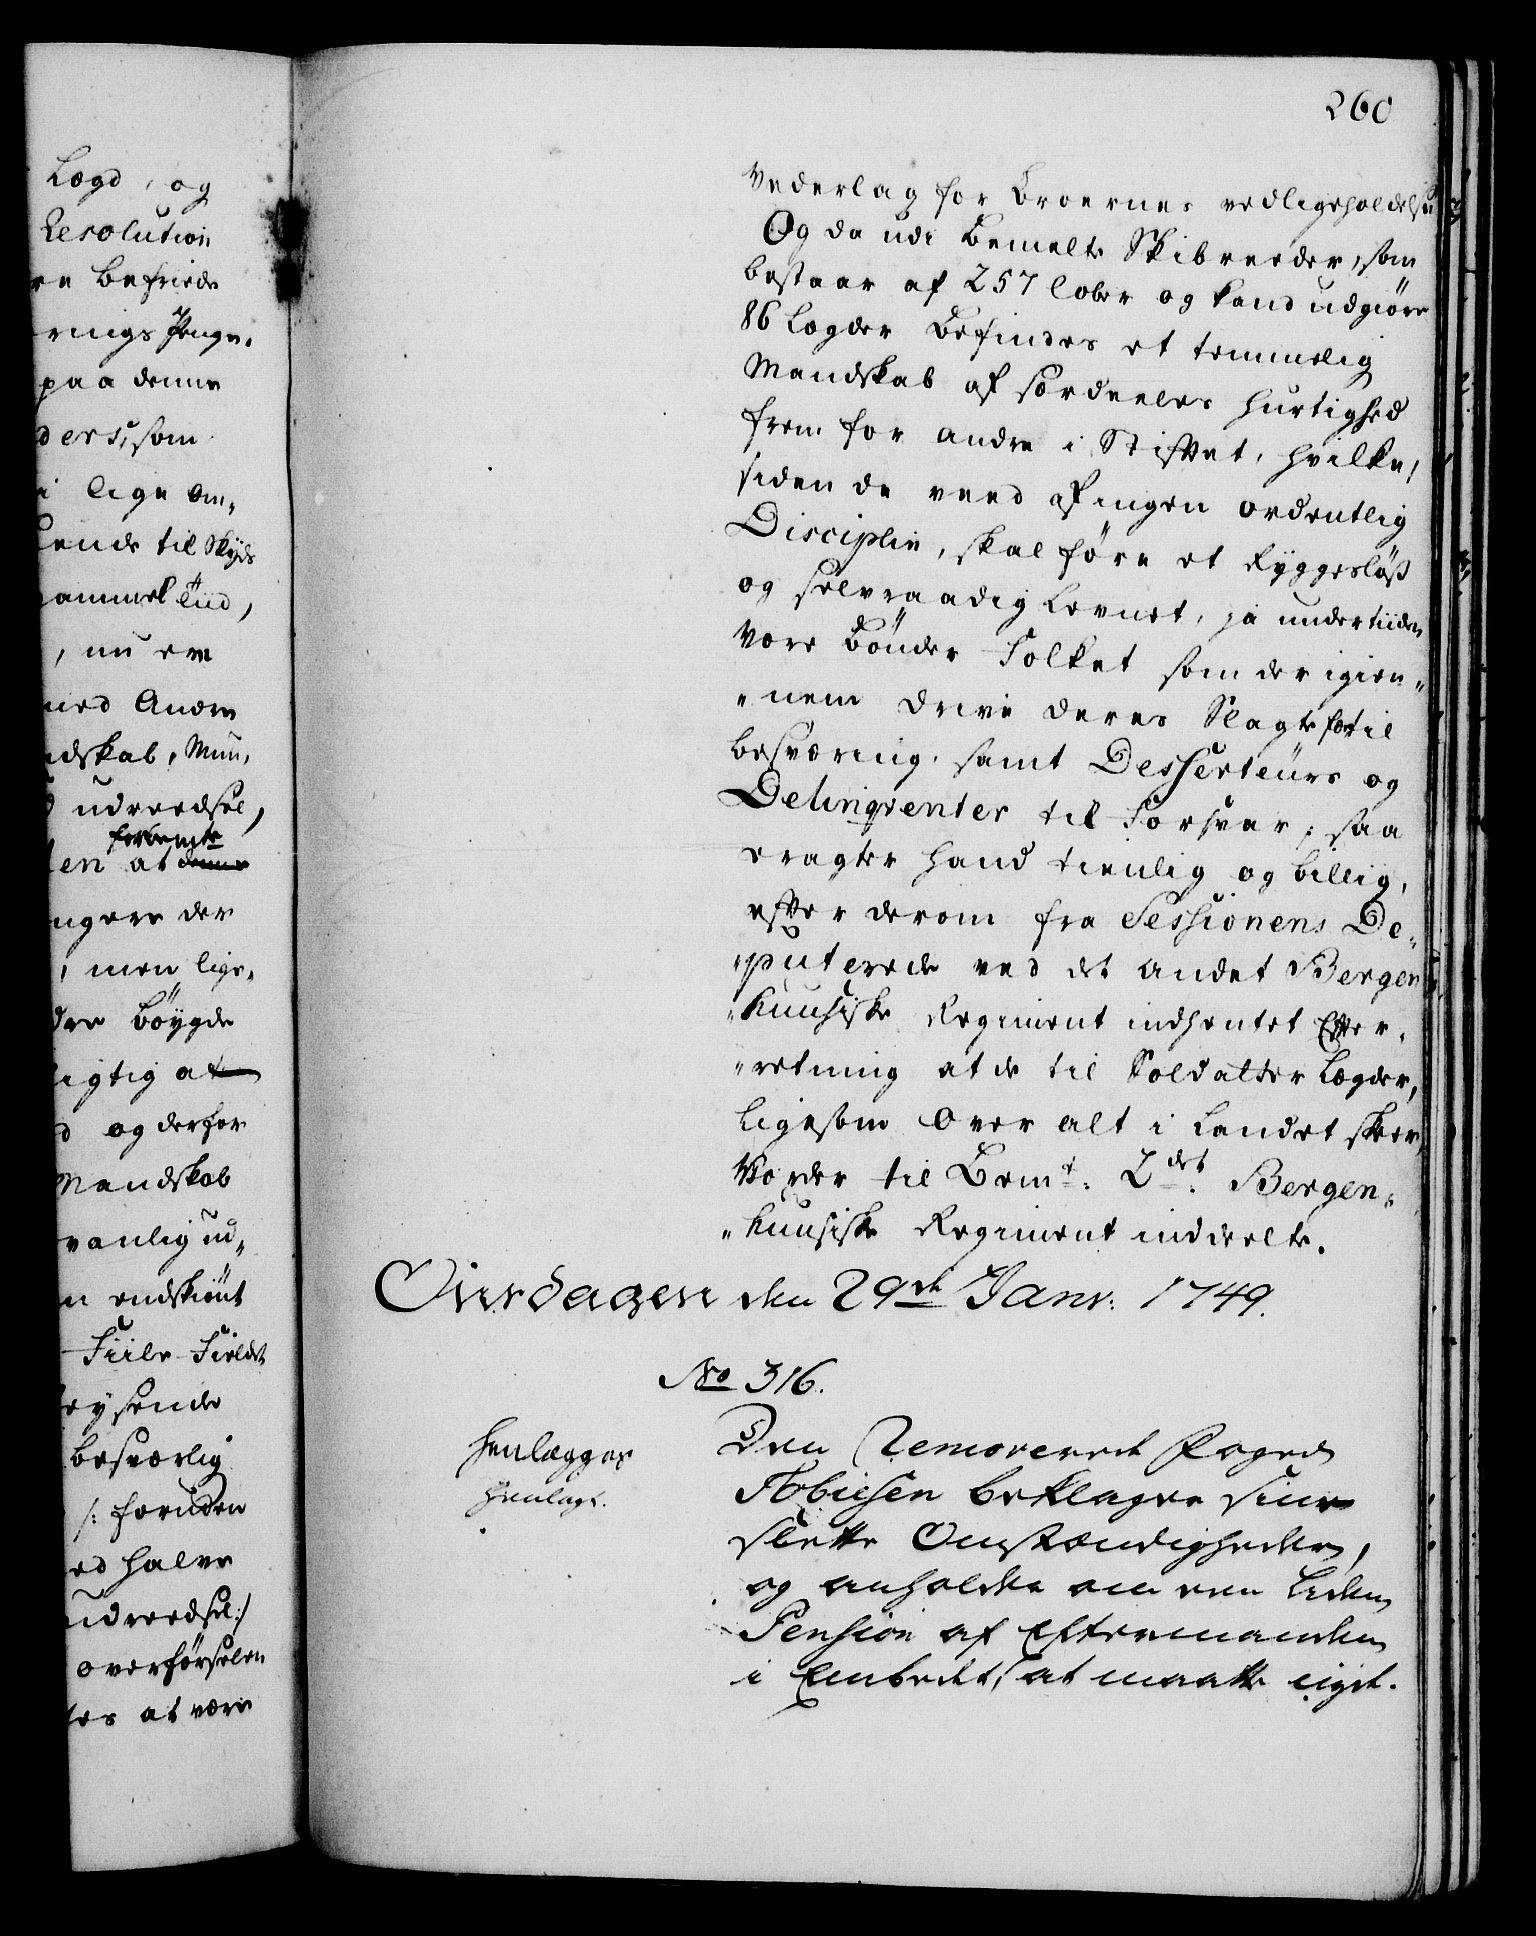 Lægd, og
Resolution
re befriede
rnings Penge,
paa denne
ders, som
i lige Om„
ende til Skyds
gammel tiid,
, nu ere
med Andre
ndskab, Mun„
udreedsel,
forbemte
len at denne
ngere der
, men lige„
dre böygde
igtig at
d og derfor
Mandskab
vanlig ud„
n endskiönt
Fiile-Fieldet
eysende
besværlig
/: foruden
ed halve
udreedsel :/
overförselen
tes at være
260
Vederlag for broernes vedligeholdelse
Og da udi bemelte Skibreeder, som
bestaar af 257 lober og kand udgiöre
86 Lægder befindes et temmelig
Mandskab af særdeeles hurtighed
frem for andre i Stiftet, hvilke,
siden de veed af ingen ordentlig
Disciplin, skal före et Ryggeslöß
og selvraadig Levnet, ja undertiiden
være bönder Folket som der igien„
„nem drive deres Slagte fæ til
besværing, samt Desserteurs og
Delinqventer til Forsvar; saa
eragter hand tienlig og billig,
efter derom fra Sessionens De„
„puterede ved det andet Bergen
„huusiske Regiment indhentet Efter„
„retning at de til Soldatter Lægder,
ligesom over alt i Landet skeer,
vorder til Bemt: 2det Bergen„
„huusiske Regiment inddeelte.
Onsdagen den 29de Janv: 1749.
No 316.
Henlægges
Henlagt.
Den Removerede Foged
Tobiesen beklager sine
slette Omstændigheder,
og anholder om een liden
Pension af Eftermanden
i Embedet, at maatte niyde.